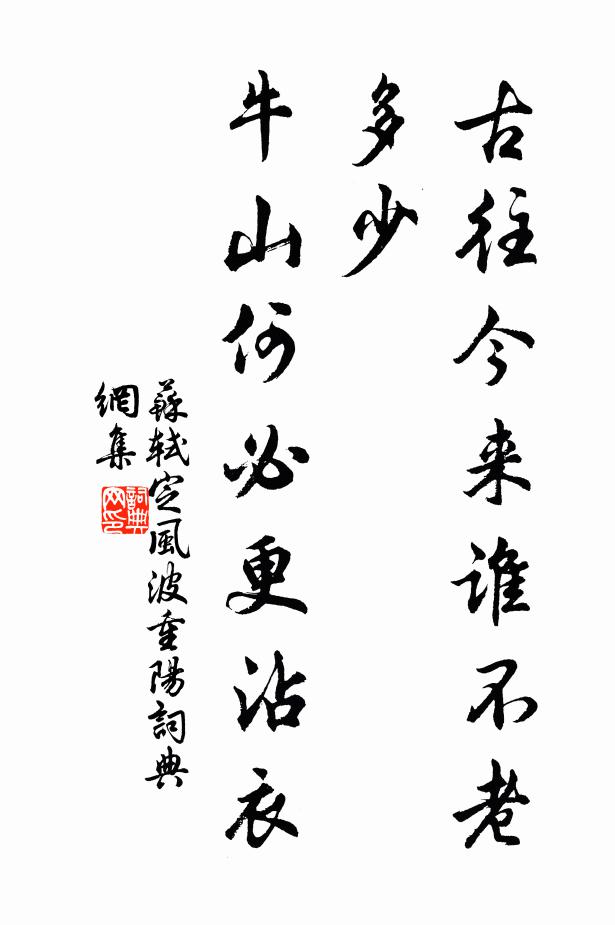 古往今来谁不老
多少
牛山何必更沾衣
蘇軾定風波重陽詞典
網集
詞典
网印